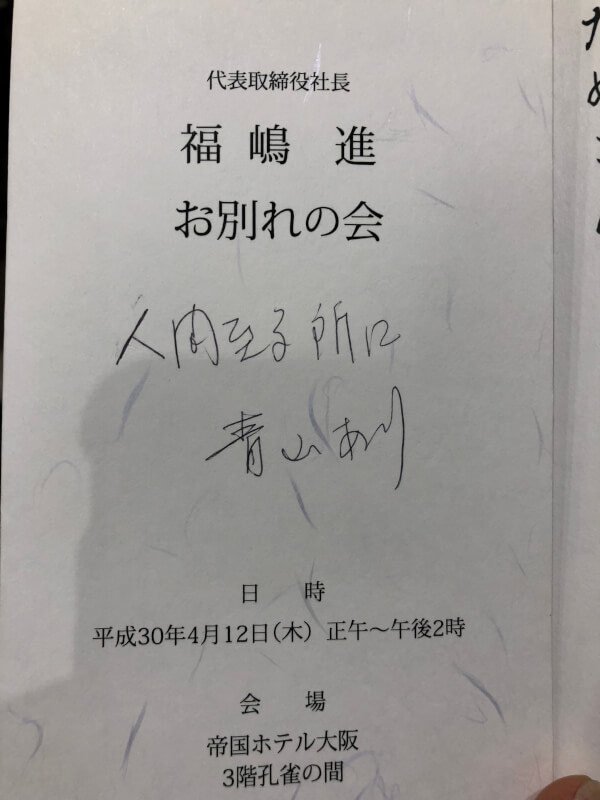 代表取締役社長
福嶋 進
お別れの会
人間至る所に
青山あり
日 時
平成30年4月12日(木) 正午～午後2時
会 場
帝国ホテル大阪
3階孔雀の間